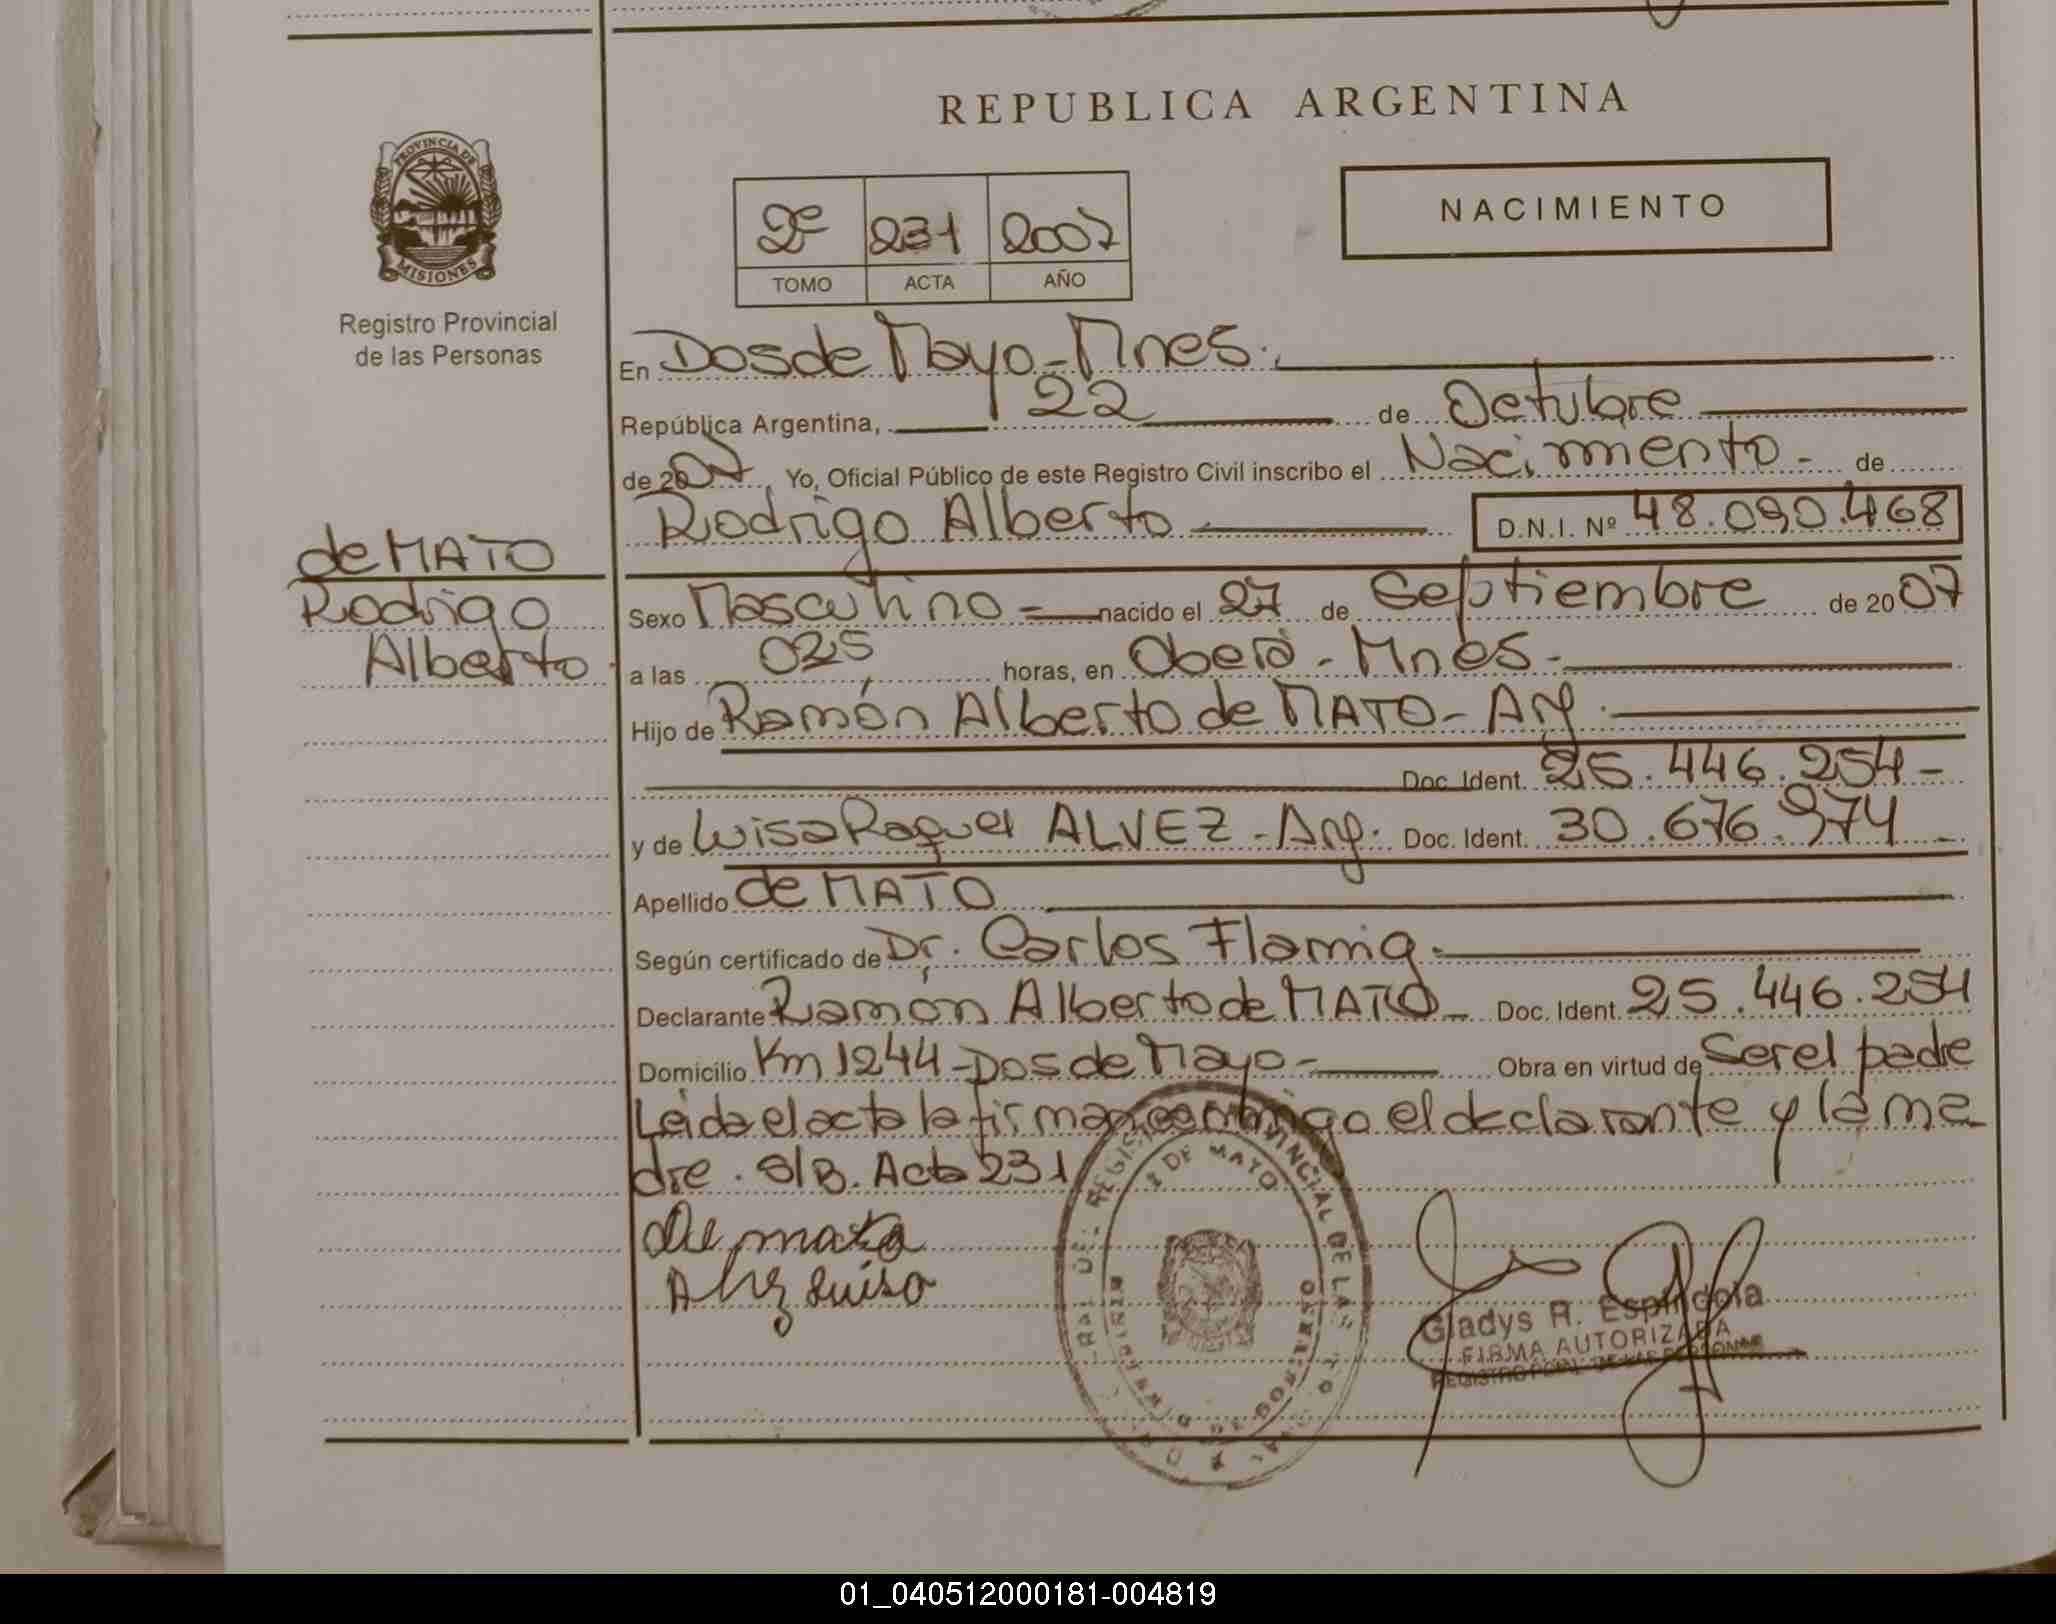 REPUBLICA ARGENTINA
PROVINCIA DE
MISIONES
Registro Provincial
de las Personas
NACIMIENTO
2º 231 2007
TOMO ACTA AÑO
En Dos de Mayo - Mnes.
República Argentina, 22 de Octubre
de 2007. Yo, Oficial Público de este Registro Civil inscribo el Nacimiento - de
Rodrigo Alberto D.N.I. Nº 48.090.468
de MATO
Rodrigo
Alberto
Sexo Masculino - nacido el 27 de Septiembre de 2007
a las 025 horas, en Oberá - Mnes -
Hijo de Ramón Alberto de MATO - Arg.
Doc. Ident. 25.446.254 -
y de Luisa Raquel ALVEZ - Arg. Doc. Ident. 30.676.974 -
Apellido de MATO
Según certificado de Dr. Carlos Flamig.
Declarante Ramón Alberto de MATO - Doc. Ident. 25.446.254
Domicilio Km 1244 - Dos de Mayo - Obra en virtud de Ser el padre
Leida el acta la firman conmigo el declarante y la ma
dre. S/B. Acta 231
de mato
Alvez Luisa
2 DE MAYO
Gladys R. Espindola
FIRMA AUTORIZADA
01_040512000181-004819